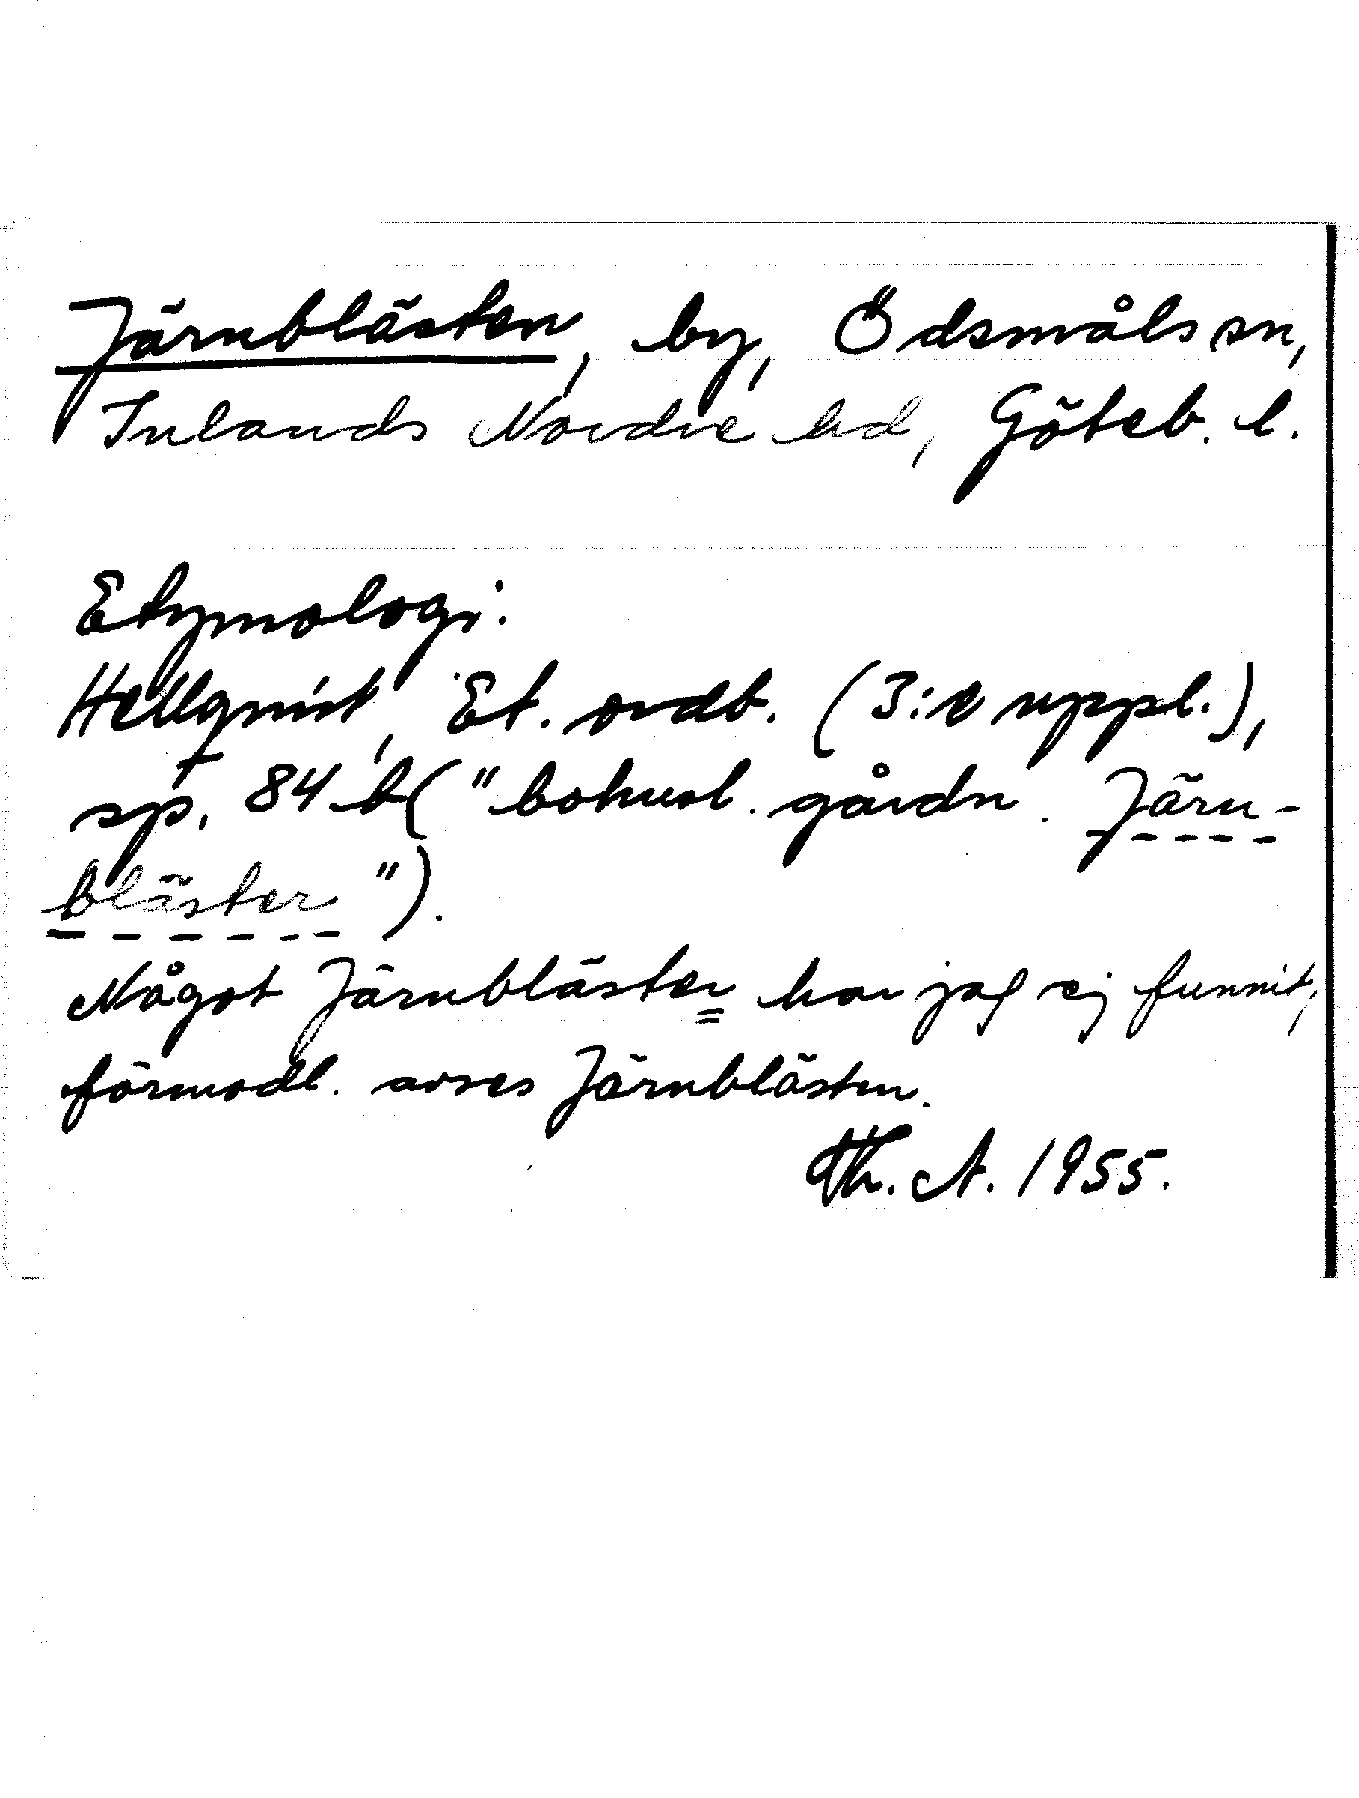 Järnblästen, by, Ödsmåls sn,
Inlands Nordre hd, Göteb. l.
Etymologi:
Hellquist, Et. ordb. (3:e uppl.),
sp. 84 b ("bohusl. gårdn. Järn-
bläster").
Något Järnbläster har jag ej funnit,
förmodl. avses Järnblästen.
Th. A. 1955.